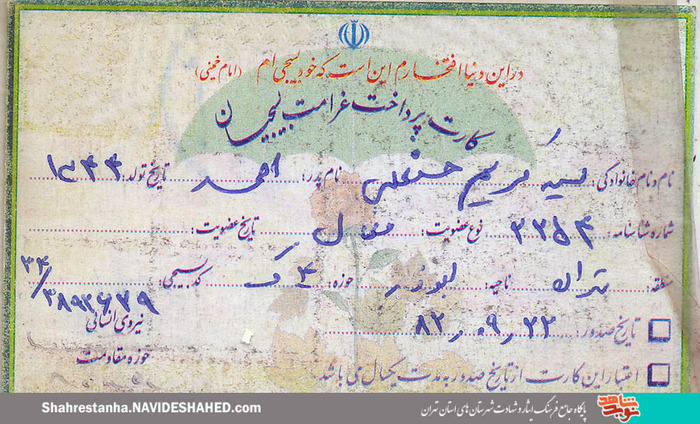 در این دنیا افتخارم این است که خود بسیجی ام (امام خمینی)
کارت پرداخت غرامت بسیجیان
نام و نام خانوادگی: سید کریم حسنعلی نام پدر: احمد تاریخ تولد: ۱۳۴۴
شماره شناسنامه: ۲۲۵۴ نوع عضویت: فعال تاریخ عضویت:
منطقه: تهران ناحیه: ابوذر حوزه: ۴ کد بسیجی: ۳۴/۳۸۹۲۶۷۹
تاریخ صدور: ۸۲،۰۹،۲۲
نیروی انسانی
حوزه مقاومت
اعتبار این کارت از تاریخ صدور به مدت یکسال می باشد.
Shahrestanha.NAVIDESHAHED.com
پایگاه جامع فرهنگ ایثار و شهادت شهرستان های استان تهران
نوید شاهد